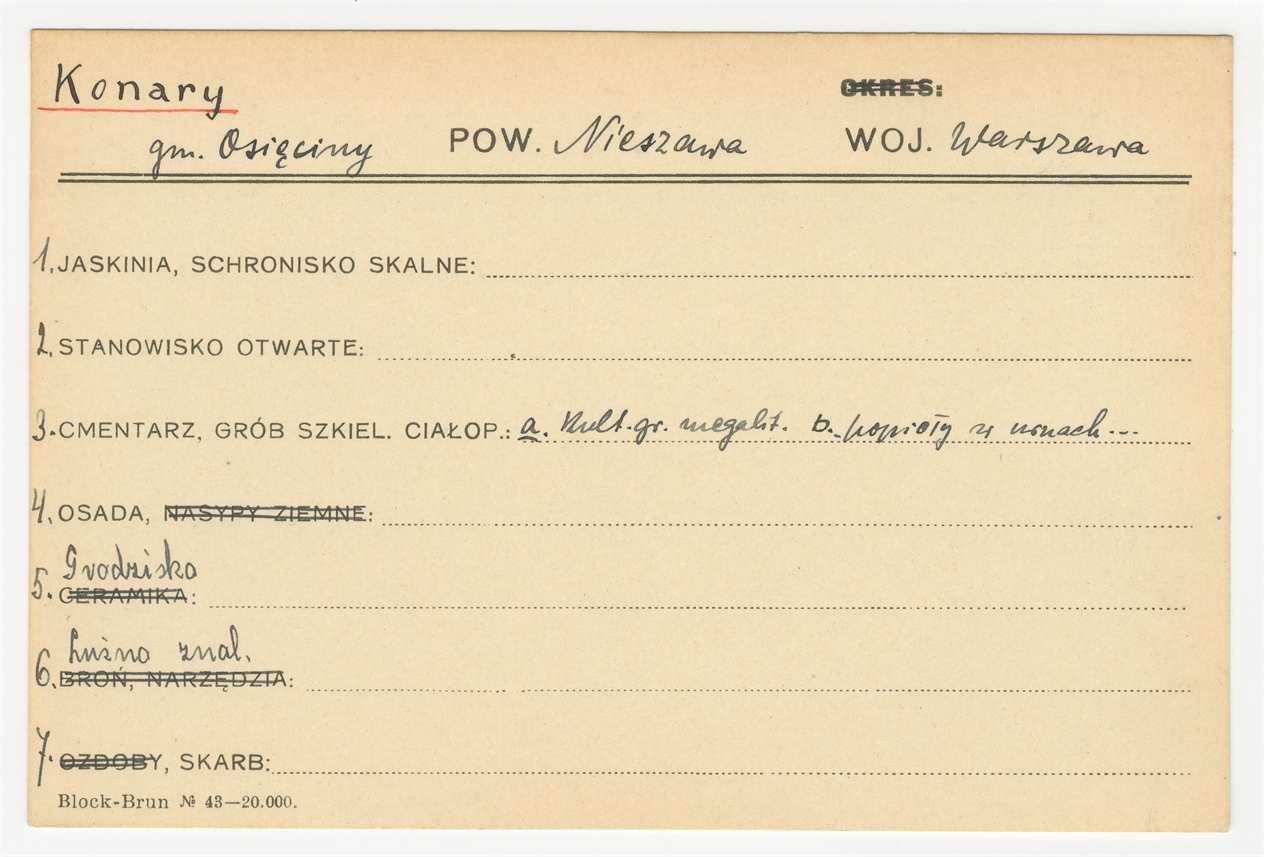 Konary
OKRES:
gm. Osięciny POW. Nieszawa WOJ. Warszawa
1. JASKINIA, SCHRONISKO SKALNE:
2. STANOWISKO OTWARTE:
3. CMENTARZ, GRÓB SZKIEL. CIAŁOP.: a. Kult. gr. megalit. b. popioły w urnach...
4. OSADA, NASYPY ZIEMNE:
Grodzisko
5. CERAMIKA:
Luźno znal.
6. BROŃ, NARZĘDZIA:
7. OZDOBY, SKARB:
Block-Brun № 43—20.000.